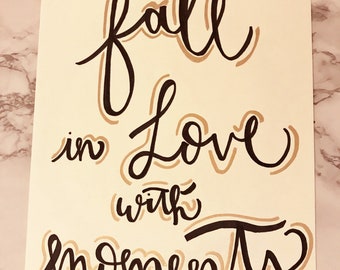 fall
in Love
with
momenTs